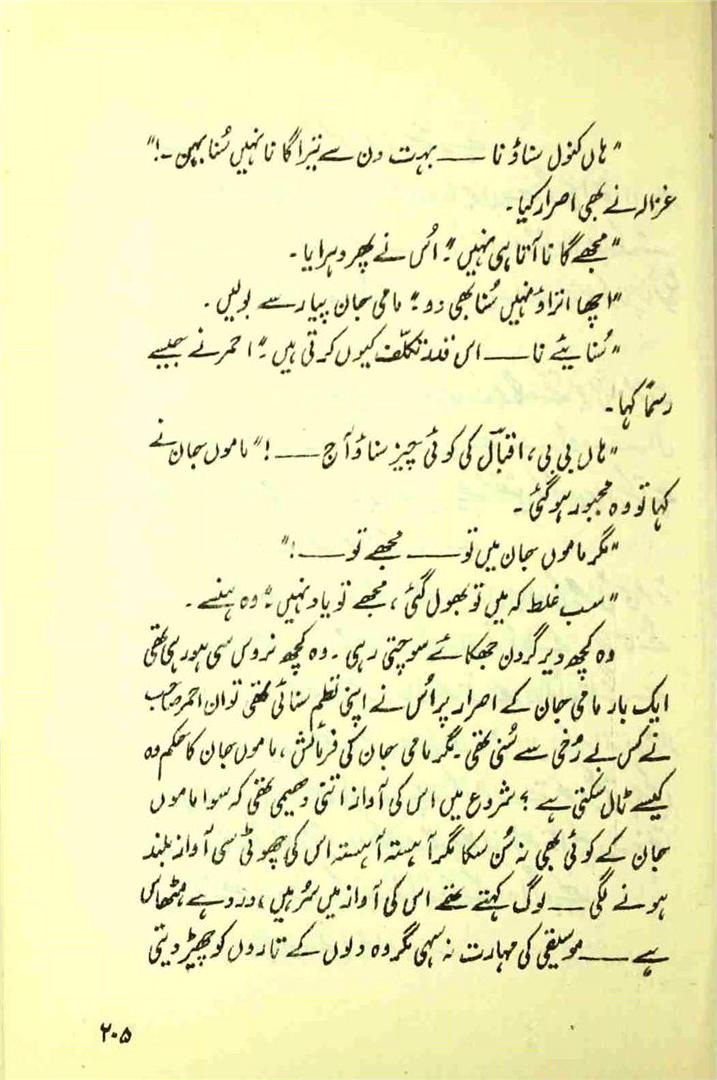 "ہاں کنول سناؤ نا —— بہت دن سے تیرا گانا نہیں سُنا بہن۔!"
غزالہ نے بھی اصرار کیا۔
"مجھے گانا آتا ہی نہیں۔" اُس نے پھر دہرایا۔
"اچھا اتراؤ نہیں سُنا بھی دو۔" مامی جان پیار سے بولیں۔
"سُنایئے نا —— اس قدر تکلّف کیوں کرتی ہیں۔" احمر نے جیسے
رسماً کہا۔
"ہاں بی بی، اقبالؔ کی کوئی چیز سناؤ آج —— !" ماموں جان نے
کہا تو وہ مجبور ہو گئی۔
"مگر ماموں جان میں تو —— مجھے تو —— !"
"سب غلط کہ میں تو بھول گئی، مجھے تو یاد نہیں۔" وہ ہنسے۔
وہ کچھ دیر گردن جھکائے سوچتی رہی۔ وہ کچھ نروس سی ہو رہی تھی
ایک بار مامی جان کے اصرار پر اُس نے اپنی نظم سنائی تھی تو ان احمر صاحب
نے کس بے رُخی سے سُنی تھی۔ مگر مامی جان کی فرمائش، ماموں جان کا حکم وہ
کیسے ٹال سکتی ہے؟ شروع میں اس کی آواز اتنی دھیمی تھی کہ سوا ماموں
جان کے کوئی بھی نہ سُن سکا مگر آہستہ آہستہ اس کی چھوٹی سی آواز بلند
ہونے لگی —— لوگ کہتے تھے اس کی آواز میں سُر ہیں، درد ہے مٹھاس
ہے —— موسیقی کی مہارت نہ سہی مگر وہ دلوں کے تاروں کو چھیڑ دیتی
۲۰۵